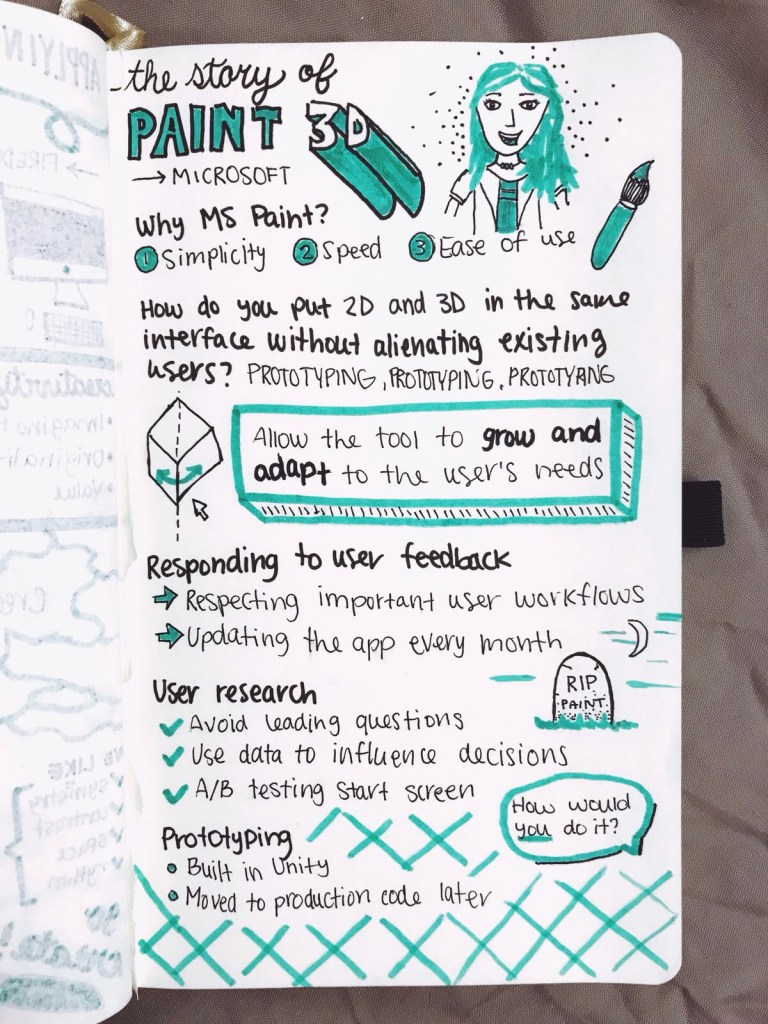 the story of
PAINT 3D
→ MICROSOFT
Why MS Paint?
1 Simplicity 2 Speed 3 Ease of use
How do you put 2D and 3D in the same
interface without alienating existing
users? PROTOTYPING, PROTOTYPING, PROTOTYPING
Allow the tool to grow and
adapt to the user's needs
Responding to user feedback
→ Respecting important user workflows
→ Updating the app every month
RIP
PAINT
User research
✓ Avoid leading questions
✓ Use data to influence decisions
✓ A/B testing start screen
How would
you do it?
Prototyping
• Built in Unity
• Moved to production code later